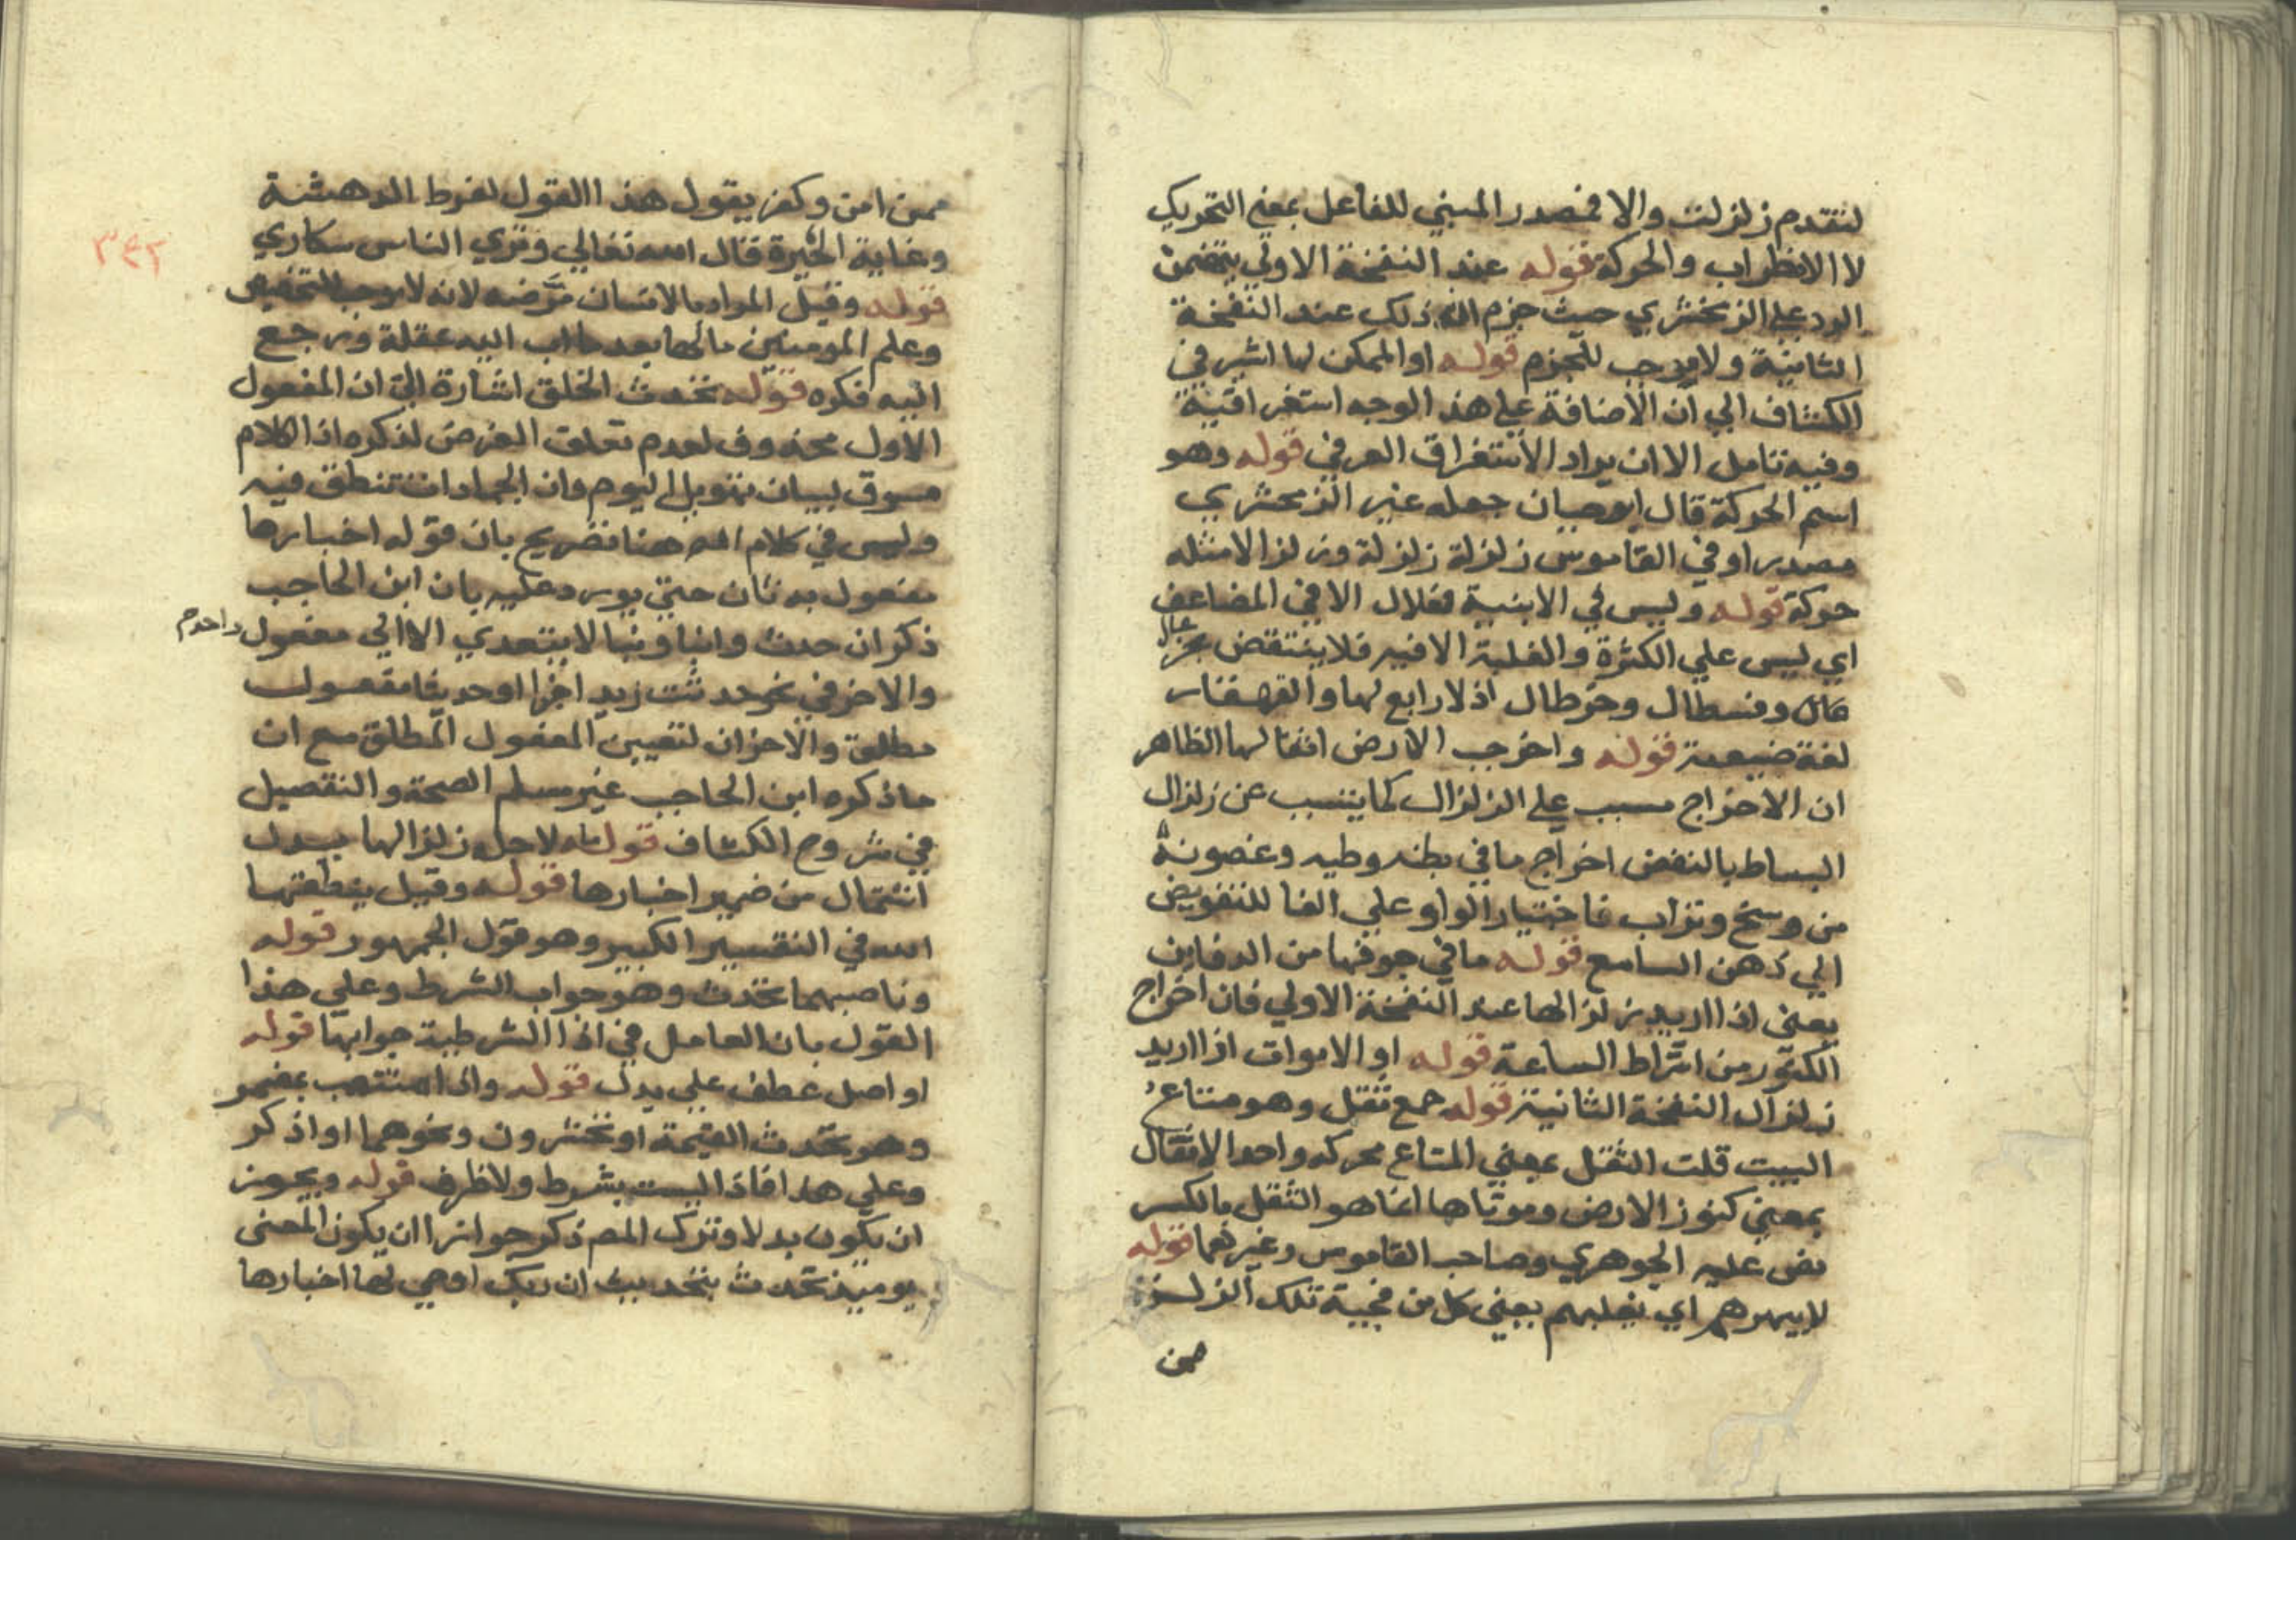 لتقدم زلزلت والا فمصدر المبني للفاعل بمعني التحريك
لا الاضطراب والحركة قوله عند النفخة الاولي يتضمن
الرد علي الزمخشري حيث جزم ان ذلك عند النفخة
الثانية ولا موجب للجزم قوله او الممكن لها اشير في
الكشاف الي ان الاضافة علي هذ الوجه استغراقية
وفيه تامل الا ان يراد الاستغراق العرفي قوله وهو
اسم الحركة قال ابو حيان جعله غير الزمخشري
مصدرا وفي القاموس زلزلة زلزلة وزلزالا مثله
حركة قوله وليس في الابنية فعلال الا في المضاعف
اي ليس علي الكثرة والغلبة الا فيه فلا ينتقض بخزعال
وقسطال وخرطال اذ لا رابع لها والقهقار
لغة ضعيفة قوله واخرجت الارض اثقالها الظاهر
ان الاخراج مسبب علي الزلزال كما يتسبب عن زلزال
البساط بالنفض اخراج ما في بطنه وطيه وغضونه
من وسخ وتراب فاختيار الواو علي الفا للتفويض
الي ذهن السامع قوله ما في جوفها من الدفاين
يعني اذا اريد زلزالها عند النفخة الاولي فان اخراج
الكنوز من اشراط الساعة قوله او الاموات اذا اريد
زلزال النفخة الثانية قوله جمع ثقل وهو متاع
البيت قلت الثقل بمعني المتاع محركه واحد الاثقال
بمعني كنوز الارض وموتاها انما هو الثقل بالكسر
نص عليه الجوهري وصاحب القاموس وغيرهما قوله
لايبهرهم اي يغلبهم يعني كل من فجيئة تلك الزلزلة
ممن
ممن امن وكفر يقول هذ االقول لفرط الدهشة
وغاية الحيرة قال الله تعالي وتري الناس سكاري
٣٤٢
قوله وقيل المراد بالانسان مرضه لانه لا موجب للتخصيص
وعلم المومنين مالها بعد ما اب اليه عقله ورجع
اليه فكره قوله تحدث الخلق اشارة الي ان المفعول
الاول محذوف لعدم تعلق الغرض لذكره اذ الكلام
مسوق لبيان تهويل اليوم وان الجمادات تنطق فيه
وليس في كلام المص هنا تصريح بان قوله اخبارها
مفعول به ثان حتي يورد عليه بان ابن الحاجب
ذكر ان حدث وانبا ونبا لا يتعدي الا الي مفعول واحد م
والاخر في نحو حدثت زيدا خبرا او حديثا مفعول
مطلق والاخران لتعيين المفعول المطلق مع ان
ما ذكره ابن الحاجب غير مسلم الصحة والتفصيل
في شروح الكشاف قوله ما لاجله زلزالها بدل
اشتمال من ضمير اخبارها قوله وقيل ينطقها
الله في التفسير الكبير وهو قول الجمهور قوله
وناصبهما تحدث وهو جواب الشرط وعلي هذا
القول بان العامل في اذا الشرطية جوابها قوله
او اصل عطف علي بدل قوله واذا منتصب بمضمر
وهو تحدث القيمة او تحشرون ونحوهما او اذكر
وعلي هذا فاذا ليست بشرط ولا ظرف قوله ويجوز
ان يكون بدلا وترك المص ذكر جواز ان يكون المعني
يوميذ تحدث بتحديث ان ربك اوحي لها اخبارها